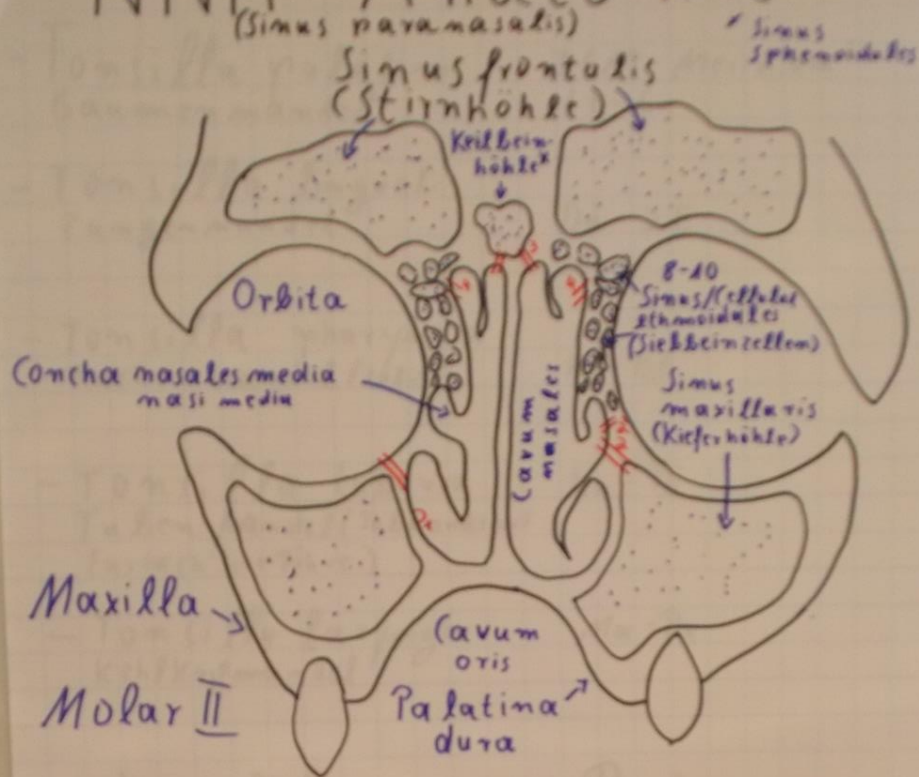 (Sinus paranasalis)
* Sinus
sphenoidales
Sinus frontalis
(Stirnhöhle)
Keilbein-
höhle*
Orbita
8-10
Sinus/Cellulae
ethmoidales
(Siebbeinzellen)
Concha nasales media
nasi media
Cavum
nasales
Sinus
maxillaris
(Kieferhöhle)
Maxilla
Cavum
oris
Molar II
Palatina
dura